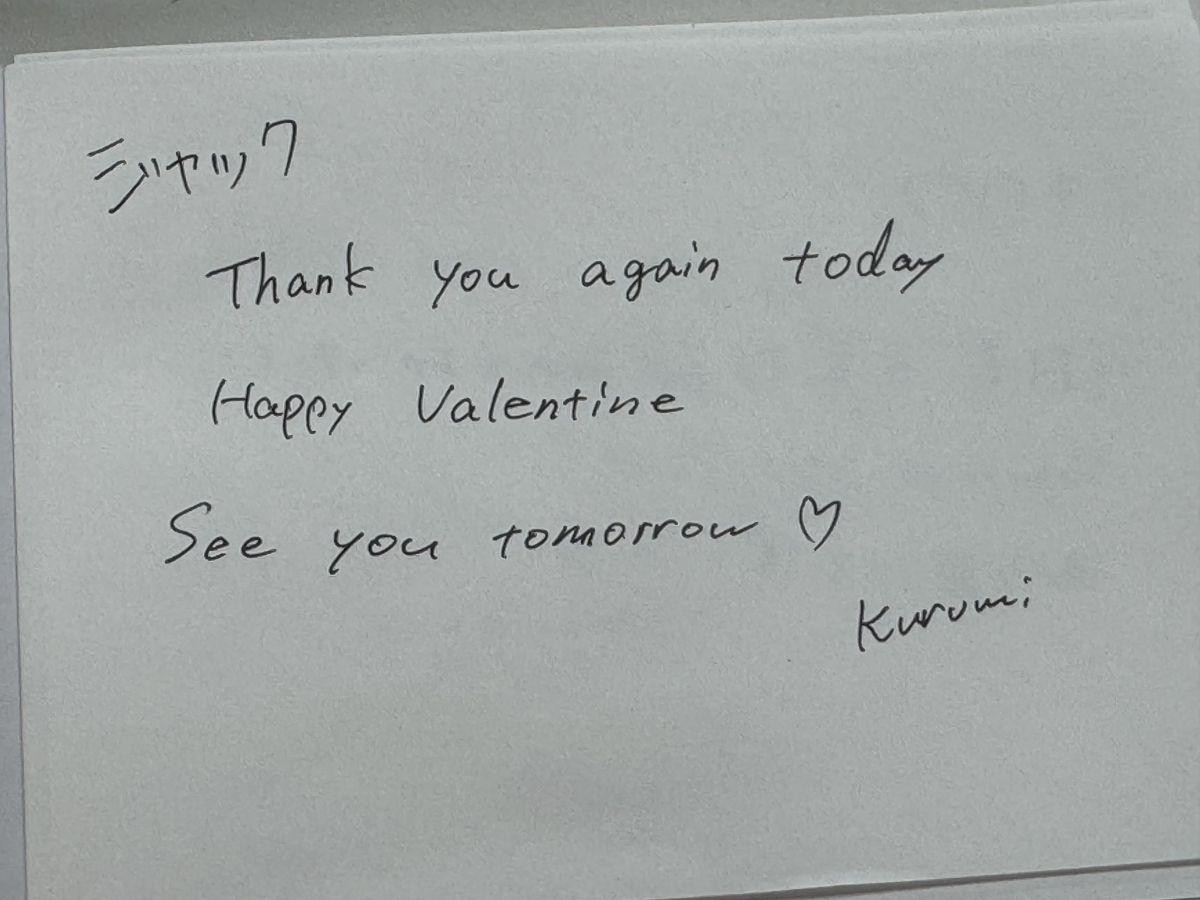 ジャック
Thank you again today
Happy Valentine
See you tomorrow ♡
Kurumi